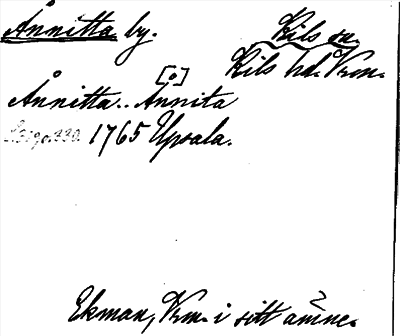 Ånnitta by. Kils sn.
Kils hd. Vrm.
[o]
Ånnitta.. Annita
1765 Upsala.
Ekman, Vrm. i sitt ämne.